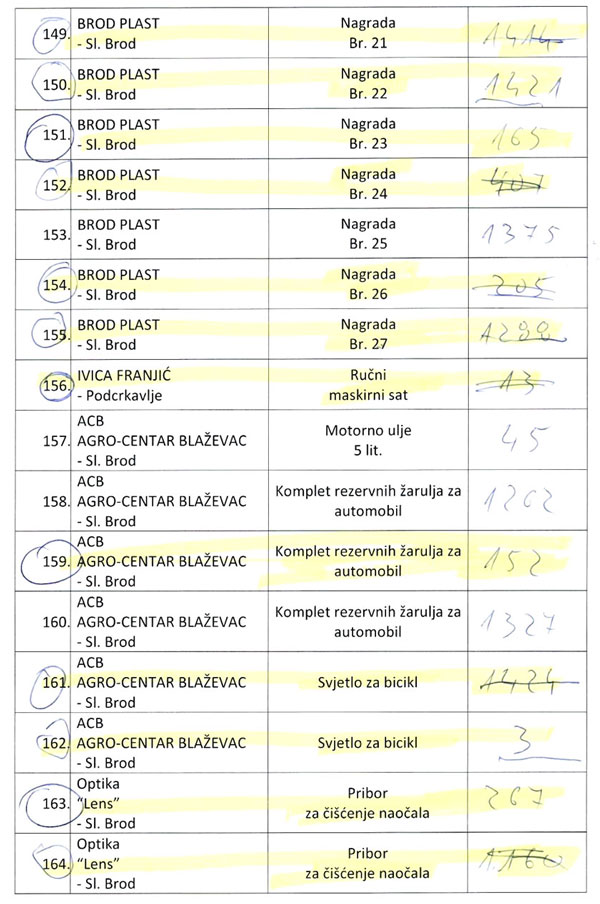 149. BROD PLAST
- Sl. Brod
Nagrada
Br. 21
1414
150. BROD PLAST
- Sl. Brod
Nagrada
Br. 22
1421
151. BROD PLAST
- Sl. Brod
Nagrada
Br. 23
165
152. BROD PLAST
- Sl. Brod
Nagrada
Br. 24
407
153. BROD PLAST
- Sl. Brod
Nagrada
Br. 25
1375
154. BROD PLAST
- Sl. Brod
Nagrada
Br. 26
205
155. BROD PLAST
- Sl. Brod
Nagrada
Br. 27
156. IVICA FRANJIĆ
- Podcrkavlje
Ručni
maskirni sat
13
157. ACB
AGRO-CENTAR BLAŽEVAC
- Sl. Brod
Motorno ulje
5 lit.
45
158. ACB
AGRO-CENTAR BLAŽEVAC
- Sl. Brod
Komplet rezervnih žarulja za
automobil
1262
159. ACB
AGRO-CENTAR BLAŽEVAC
- Sl. Brod
Komplet rezervnih žarulja za
automobil
152
160. ACB
AGRO-CENTAR BLAŽEVAC
- Sl. Brod
Komplet rezervnih žarulja za
automobil
1327
161. ACB
AGRO-CENTAR BLAŽEVAC
- Sl. Brod
Svjetlo za bicikl
1424
162. ACB
AGRO-CENTAR BLAŽEVAC
- Sl. Brod
Svjetlo za bicikl
3
163. Optika
“Lens”
- Sl. Brod
Pribor
za čišćenje naočala
267
164. Optika
“Lens”
- Sl. Brod
Pribor
za čišćenje naočala